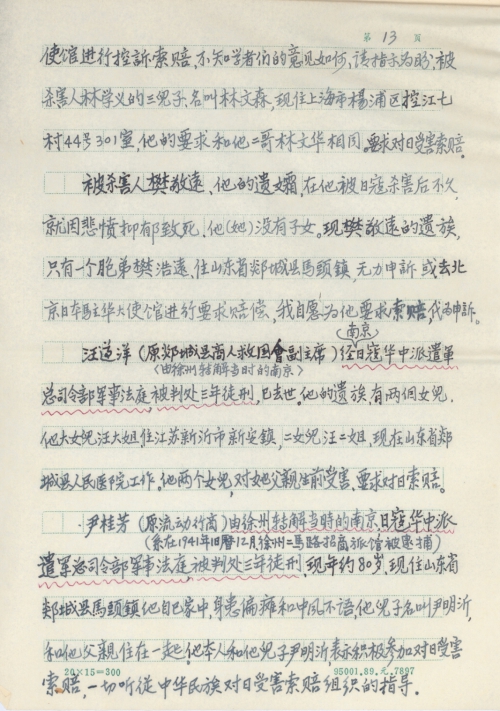 第 13 页
使馆进行控訴索赔,不知学者们的意见如何,请指示为盼,被
杀害人林学义的三兒子,名叫林文森,现住上海市楊浦区控江七
村44号301室,他的要求和他二哥林文华相同。要求对日受害索赔。
被杀害人樊敬遠,他的遗孀,在他被日寇杀害后不久,
就因悲愤抑郁致死,他(她)没有子女。现樊敬遠的遗族,
只有一个胞弟樊浩遠,住山东省郯城县馬頭鎮,无力申訴或去北
京日本駐华大使馆進行要求赔偿,我自愿为他要求索赔,代为申訴。
(南京)
汪道洋(原郯城县商人救国會副主席)经日寇华中派遣軍
(由徐州转解当时的南京)
总司令部軍事法庭,被判处三年徒刑,已去世。他的遗族,有两個女兒.
他大女兒汪大姐住江苏新沂市新安鎮,二女兒汪二姐,现在山东省郯
城县人民醫院工作。他两个女兒,对她父親生前受害、要求对日索赔。
尹桂芳(原流动行商)由徐州转解当時的南京,日寇华中派
(系在1941年旧曆12月徐州二馬路招商旅馆被逮捕)
遣軍总司令部軍事法庭,被判处三年徒刑,现年约80岁,现住山东省
郯城县馬頭鎮他自己家中,身患偏瘫和中风不语,他兒子名叫尹明沂,
和他父親住在一起。他本人和他兒子尹明沂,表示积极参加对日受害
20×15=300
95001.89.元.7897
索赔,一切听從中华民族对日受害索赔组织的指导.